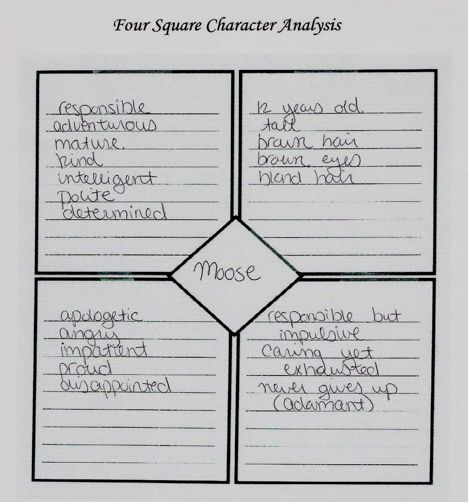 Four Square Character Analysis
responsible
adventurous
mature
kind
intelligent
polite
determined
12 years old
tall
brown hair
brown eyes
blond hair
Moose
apologetic
angry
impatient
proud
dissappointed
responsible but
impulsive
caring yet
exhausted
never gives up
(adamant)